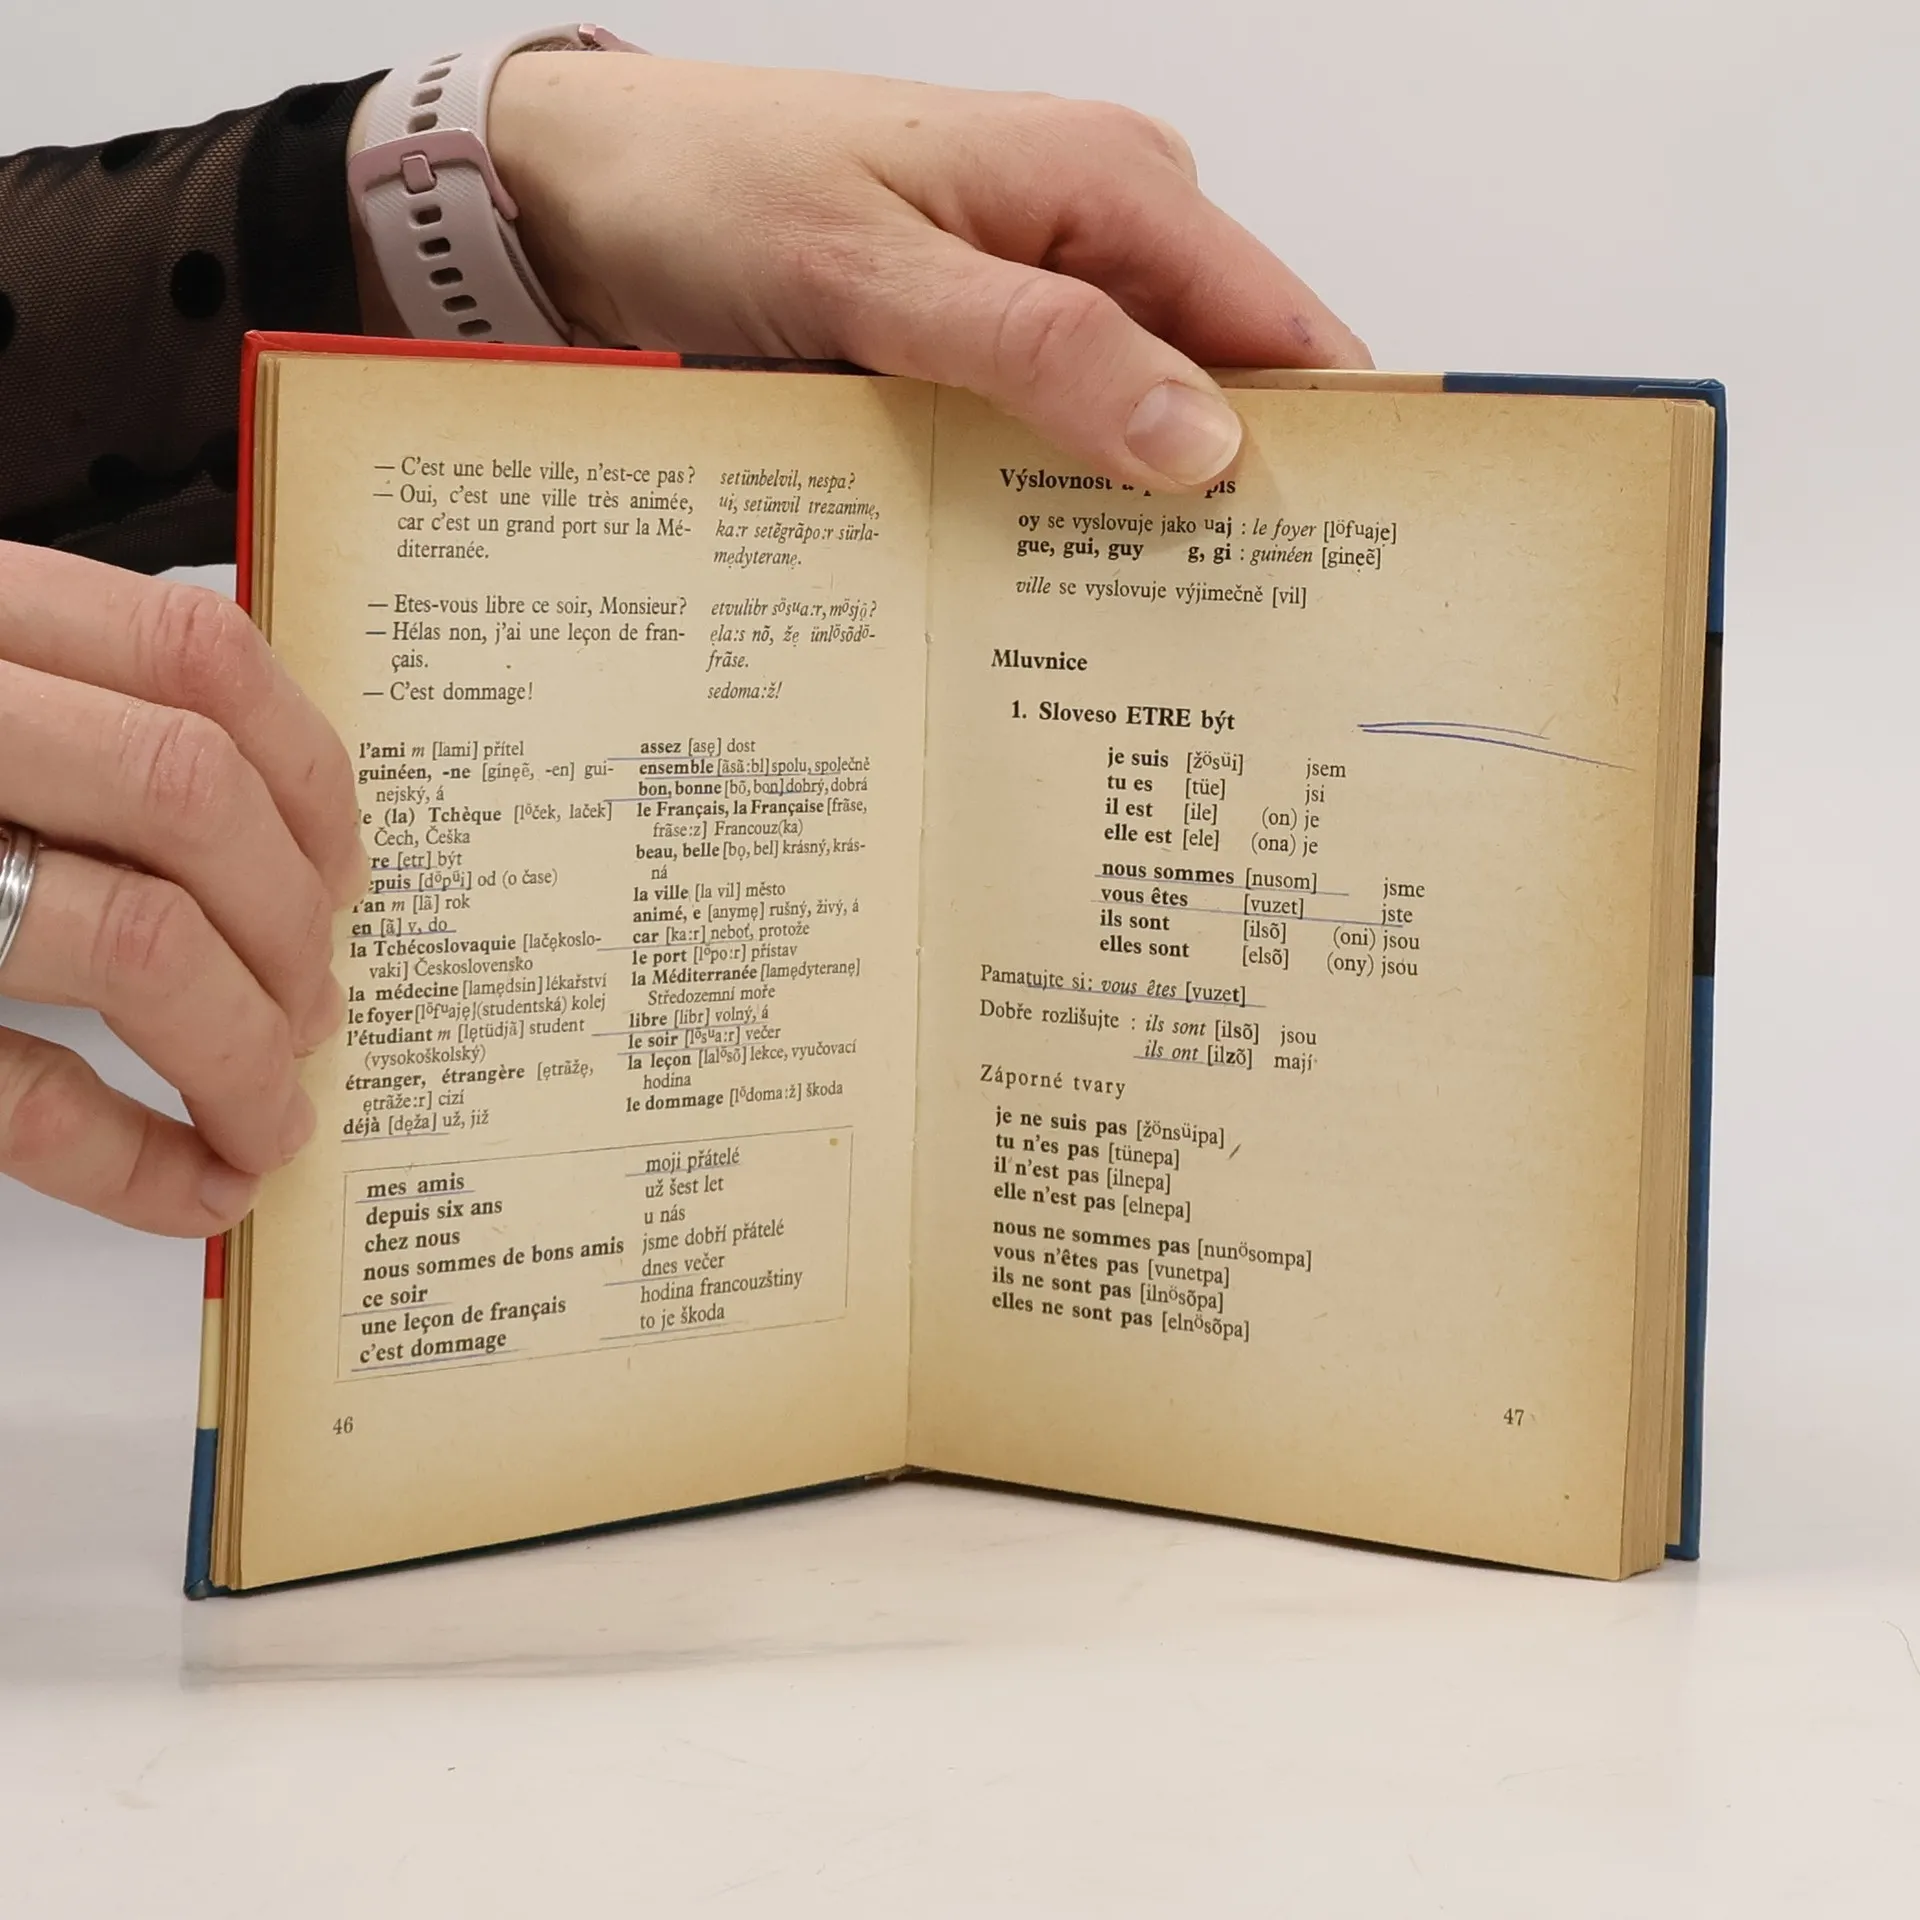 — C'est une belle ville, n'est-ce pas?
— Oui, c'est une ville très animée,
car c'est un grand port sur la Mé-
diterranée.
— Etes-vous libre ce soir, Monsieur?
— Hélas non, j'ai une leçon de fran-
çais.
— C'est dommage!
setünbelvil, nespa?
ui, setünvil trezanimę,
ka:r setẽgrãpo:r sürla-
mędyteranę.
etvulibr söswa:r, mösjö?
ęla:s nõ, žę ünlösõdö-
frãse.
sedoma:ž!
l'ami m [lami] přítel
guinéen, -ne [ginęẽ, -en] gui-
nejský, á
(la) Tchèque [löček, laček]
Čech, Češka
[etr] být
[döpüi] od (o čase)
l'an m [lã] rok
en [ã] v, do
la Tchécoslovaquie [lačękoslo-
vaki] Československo
la médecine [lamędsin] lékařství
le foyer [löfuaję] (studentská) kolej
l'étudiant m [lętüdjã] student
(vysokoškolský)
étranger, étrangère [ętrãžę,
ętrãže:r] cizí
déjà [dęža] už, již
assez [asę] dost
ensemble [ãsã:bl] spolu, společně
bon, bonne [bõ, bon] dobrý, dobrá
le Français, la Française [frãse,
frãse:z] Francouz(ka)
beau, belle [bo̧, bel] krásný, krás-
ná
la ville [la vil] město
animé, e [anymę] rušný, živý, á
car [ka:r] neboť, protože
le port [löpo:r] přístav
la Méditerranée [lamędyteranę]
Středozemní moře
libre [libr] volný, á
le soir [lösua:r] večer
la leçon [lalösõ] lekce, vyučovací
hodina
le dommage [lödoma:ž] škoda
mes amis moji přátelé
depuis six ans už šest let
chez nous u nás
nous sommes de bons amis jsme dobří přátelé
ce soir dnes večer
une leçon de français hodina francouzštiny
c'est dommage to je škoda
46
Výslovnost
oy se vyslovuje jako uaj : le foyer [löfuaję]
gue, gui, guy g, gi : guinéen [ginęẽ]
ville se vyslovuje výjimečně [vil]
Mluvnice
1. Sloveso ETRE být
je suis [žösüi] jsem
tu es [tüe] jsi
il est [ile] (on) je
elle est [ele] (ona) je
nous sommes [nusom] jsme
vous êtes [vuzet] jste
ils sont [ilsõ] (oni) jsou
elles sont [elsõ] (ony) jsou
Pamatujte si: vous êtes [vuzet]
Dobře rozlišujte : ils sont [ilsõ] jsou
ils ont [ilzõ] mají
Záporné tvary
je ne suis pas [žönsüipa]
tu n'es pas [tünepa]
il n'est pas [ilnepa]
elle n'est pas [elnepa]
nous ne sommes pas [nunösompa]
vous n'êtes pas [vunetpa]
ils ne sont pas [ilnösõpa]
elles ne sont pas [elnösõpa]
47